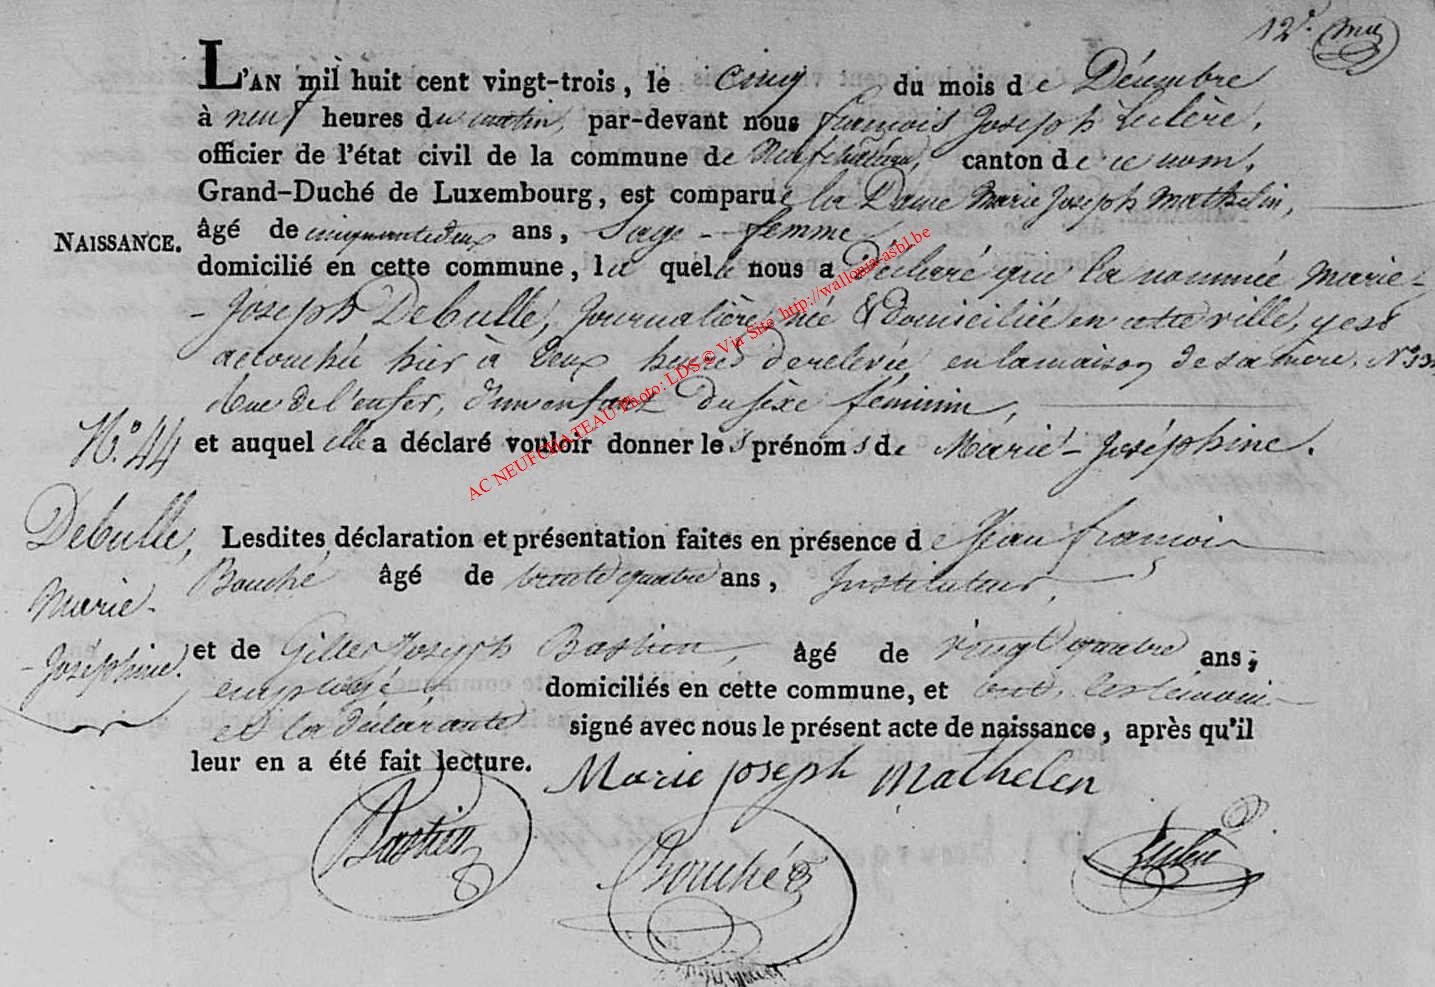 12e.
L'AN mil huit cent vingt-trois, le cinq du mois de Décembre
à neuf heures du matin, par-devant nous françois Joseph Leclère,
officier de l'état civil de la commune de Neufchâteau, canton de ce nom,
Grand-Duché de Luxembourg, est comparue la Dame Marie Joseph Mathelin,
NAISSANCE.
âgé de cinquantedeux ans, Sage-femme
domicilié en cette commune, la quelle nous a déclaré que la nommée Marie-
-Joseph Debulle, Journalière, née & domiciliée en cette ville, y est
accouchée hier à deux heures de relevée, en la maison de sa mère, No
Rue de l'enfer, d'un enfant du sexe féminin,
No. 44
et auquel elle a déclaré vouloir donner les prénoms de Marie-Joséphine.
Debulle,
Marie-
-Joséphine.
Lesdites déclaration et présentation faites en présence de Jean françois
Bouché âgé de trente quatre ans, Instituteur,
et de Gilles Joseph Bastien, âgé de vingt quatre ans;
employé, domiciliés en cette commune, et ont, les témoins
et la déclarante signé avec nous le présent acte de naissance, après qu'il
leur en a été fait lecture.
Marie joseph Mathelen
Bastien
Bouché
Leclère
AC NEUFCHATEAU Photo: LDS © Via Site http://wallonia-asbl.be